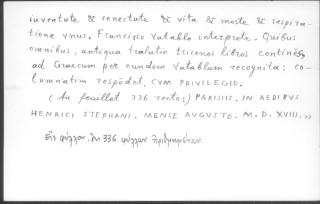 iuventute & senectute & vita & morte & respira-
tione vnus, Francisco Vatablo interprete. Quibus
omnibus, antiqua tralatio tricenos libros continẽs,
ad Graecum per eundem Vatablum recognita: co-
lumniatim respõdet. CVM PRIVILEGIO.
(Au feuillet 336 recto:) PARISIIS. IN AEDIBVS
HENRICI STEPHANI. MENSE AVGVSTO. M. D. XVIII. »
Εἰς φύλλον. ἐκ 336 φύλλων